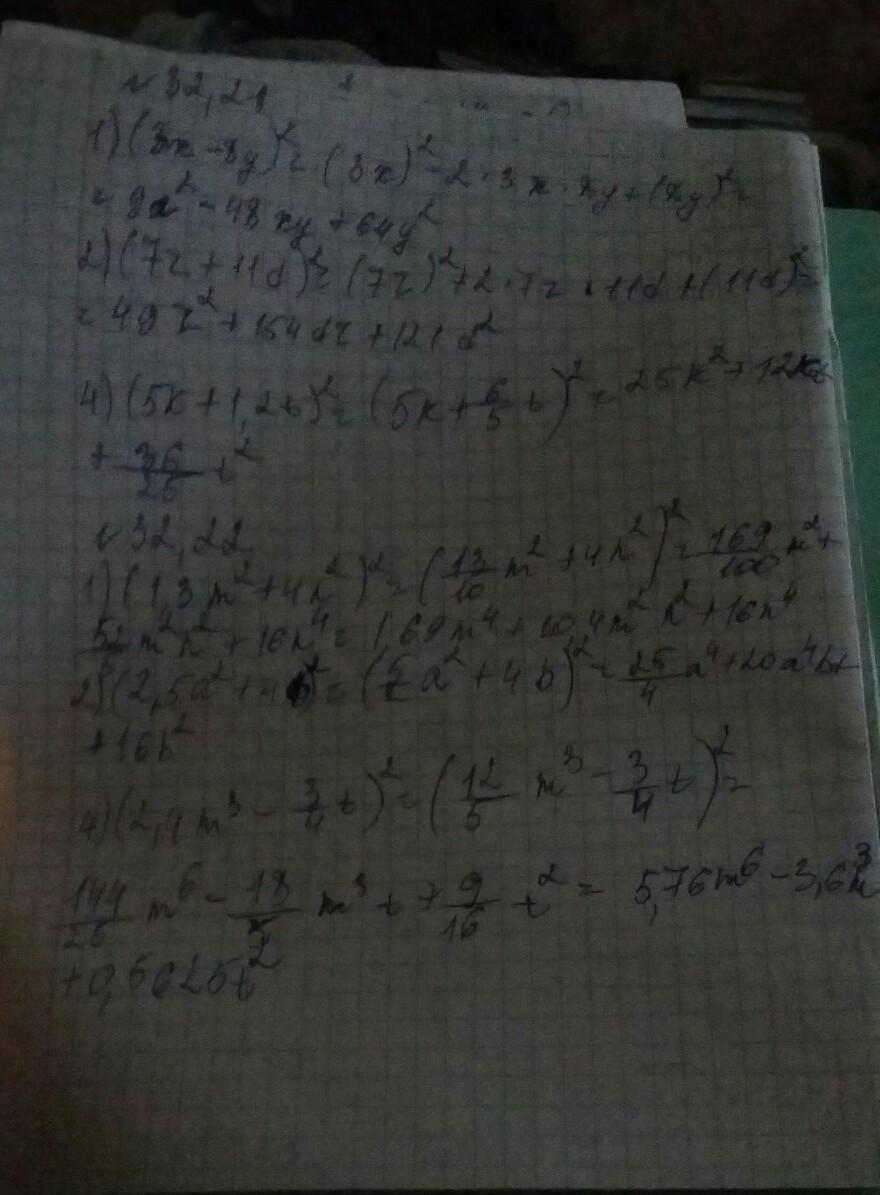 №32,21
1) (3x - 8y)² = (3x)² - 2 · 3x · 8y + (8y)² =
= 9x² - 48xy + 64y²
2) (7r + 11d)² = (7r)² + 2 · 7r · 11d + (11d)² =
= 49r² + 154dr + 121d²
4) (5k + 1,2t)² = (5k + 6/5 t)² = 25k² + 12kt
+ 36/25 t²
№32,22
1) (1,3m² + 4n²)² = (13/10 m² + 4n²)² = 169/100 m² +
52/5 m²n² + 16n⁴ = 1,69m⁴ + 10,4m²n² + 16n⁴
2) (2,5a² + 4b)² = (5/2 a² + 4b)² = 25/4 a⁴ + 20a⁴b +
+ 16b²
4) (2,4m³ - 3/4 t)² = (12/5 m³ - 3/4 t)² =
144/25 m⁶ - 18/5 m³t + 9/16 t² = 5,76m⁶ - 3,6m³
+ 0,5625t²